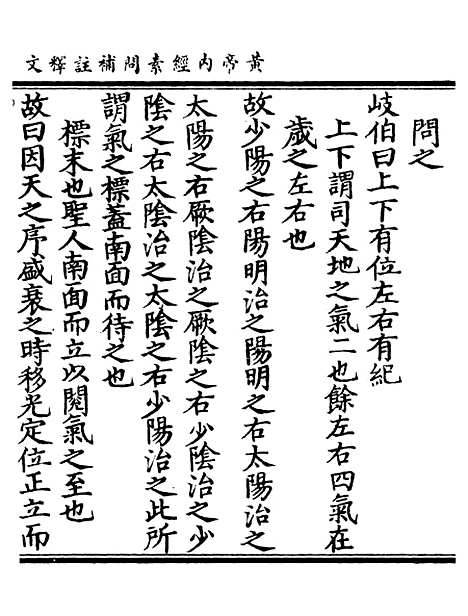 黃帝內經素問補註釋文
問之
岐伯曰上下有位左右有紀
上下謂司天地之氣二也餘左右四氣在
歲之左右也
故少陽之右陽明治之陽明之右太陽治之
太陽之右厥陰治之厥陰之右少陰治之少
陰之右太陰治之太陰之右少陽治之此所
謂氣之標蓋南面而待之也
標末也聖人南面而立以閱氣之至也
故曰因天之序盛衰之時移光定位正立而